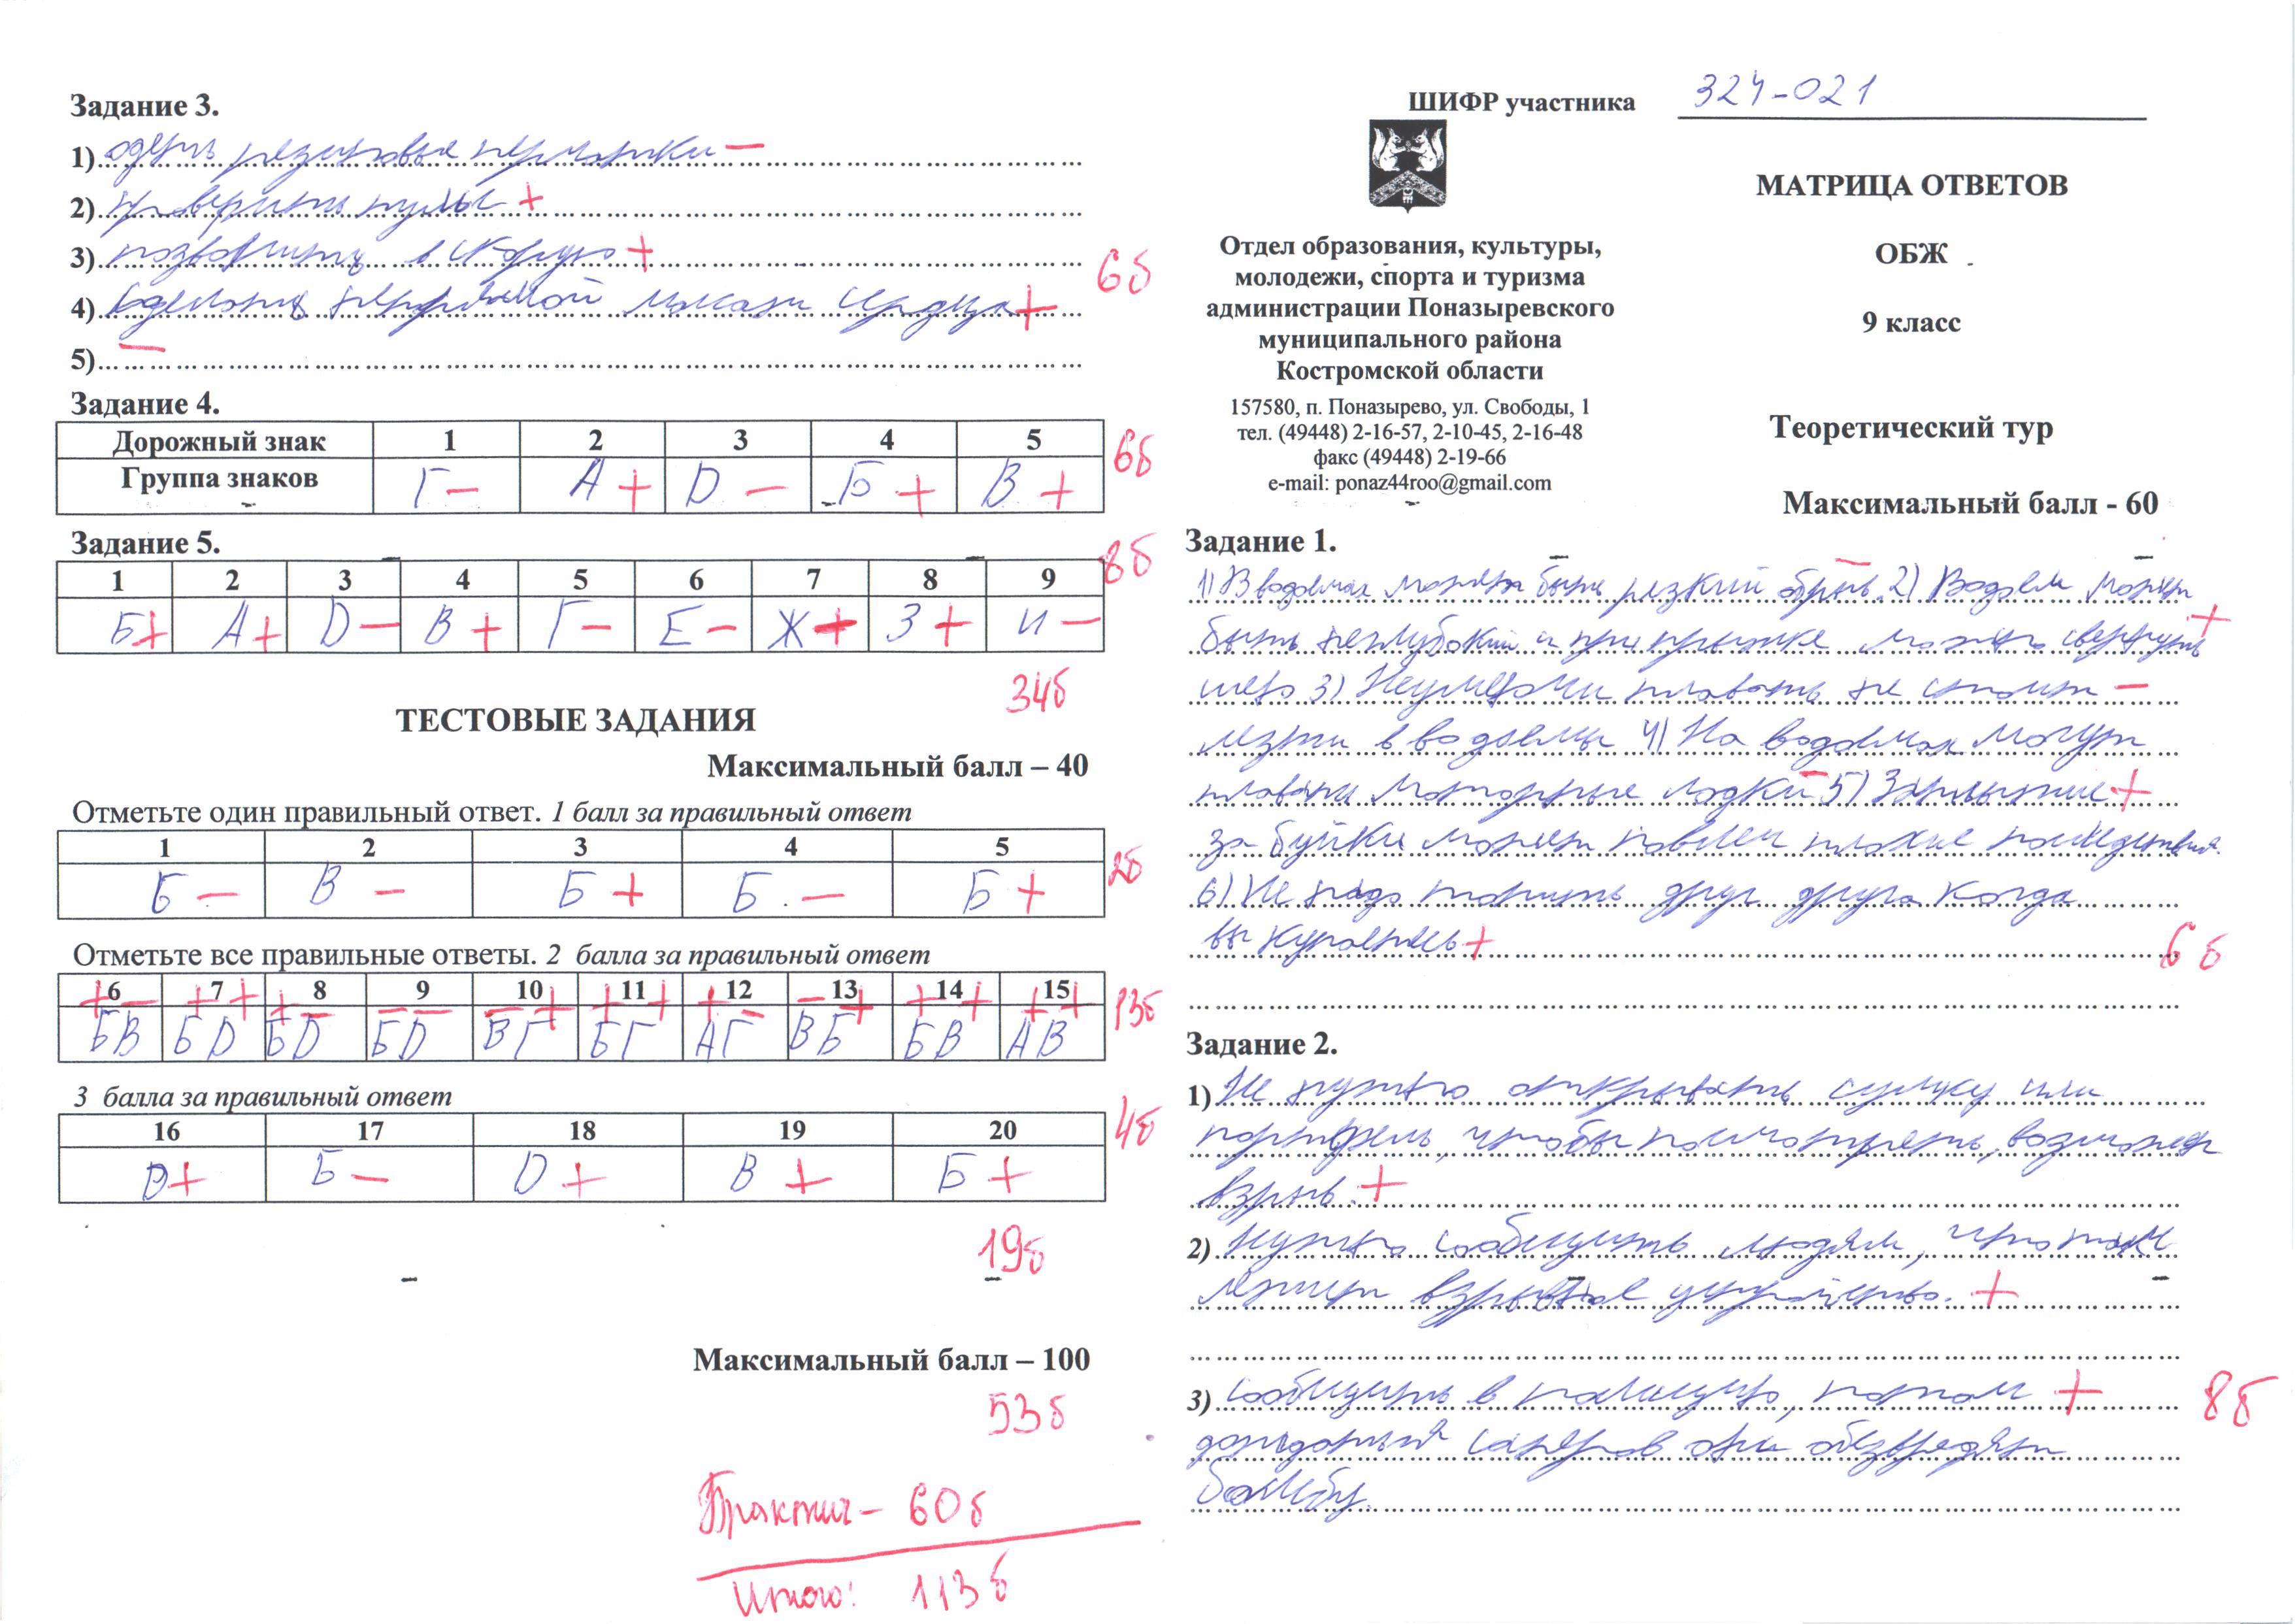 Задание 3.
1) одеть резиновые перчатки –
2) проверить пульс +
3) позвонить в скорую +
6б
4) сделать непрямой масаж сердца +
5) –
Задание 4.
Дорожный знак 1 2 3 4 5
6б
Группа знаков Г – А + D – Б + В +
Задание 5.
8б
1 2 3 4 5 6 7 8 9
Б + А + D – В + Г – Е – Ж + З + И –
34б
ТЕСТОВЫЕ ЗАДАНИЯ
Максимальный балл – 40
Отметьте один правильный ответ. 1 балл за правильный ответ
1 2 3 4 5
2б
Б – В – Б + Б – Б +
Отметьте все правильные ответы. 2 балла за правильный ответ
+ 6 – + 7 + + 8 – – 9 – – 10 + + 11 + + 12 – – 13 + + 14 + + 15 +
13б
БВ БD БD БD ВГ БГ АГ ВБ БВ АВ
3 балла за правильный ответ
4б
16 17 18 19 20
D + Б – D + В + Б +
19б
Максимальный балл – 100
53б
Практич – 60б
Итого: 113б
ШИФР участника 324-021
МАТРИЦА ОТВЕТОВ
ОБЖ
9 класс
Теоретический тур
Максимальный балл - 60
Отдел образования, культуры,
молодежи, спорта и туризма
администрации Поназыревского
муниципального района
Костромской области
157580, п. Поназырево, ул. Свободы, 1
тел. (49448) 2-16-57, 2-10-45, 2-16-48
факс (49448) 2-19-66
e-mail: ponaz44roo@gmail.com
Задание 1.
1) В водоемах может быть резкий обрыв. – 2) Водоем может
быть неглубокий и при прыжке можно свернуть +
шею 3) Неумеючи плавать не стоит –
лезти в водоемы 4) На водоемах могут
плавать моторные лодки – 5) Заплытие +
за буйки может плохие последствия.
6) Не надо топить друг друга когда
вы купаетесь +
6б
Задание 2.
1) Не нужно открывать сумку или
портфель, чтобы посмотреть, возможен
взрыв. +
2) Нужно сообщить людям, что там
лежит взрывное устройство. +
3) Сообщить в полицию, потом +
8б
саперов они обезвредят
бомбу.